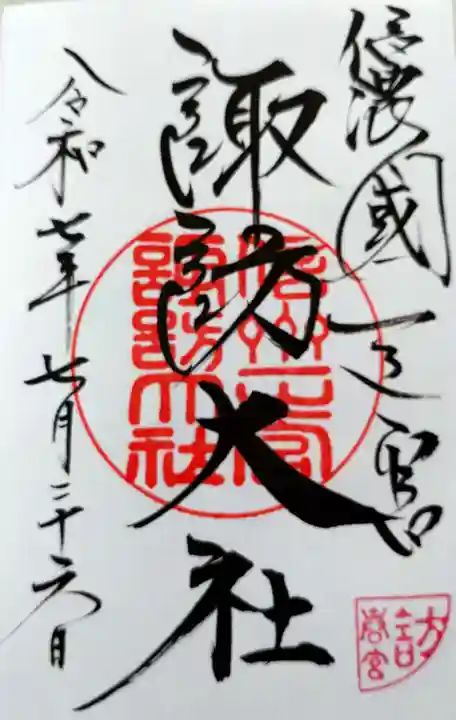 信濃國一之宮
諏訪大社
令和七年七月二十六日
信州一之宮
諏訪大社